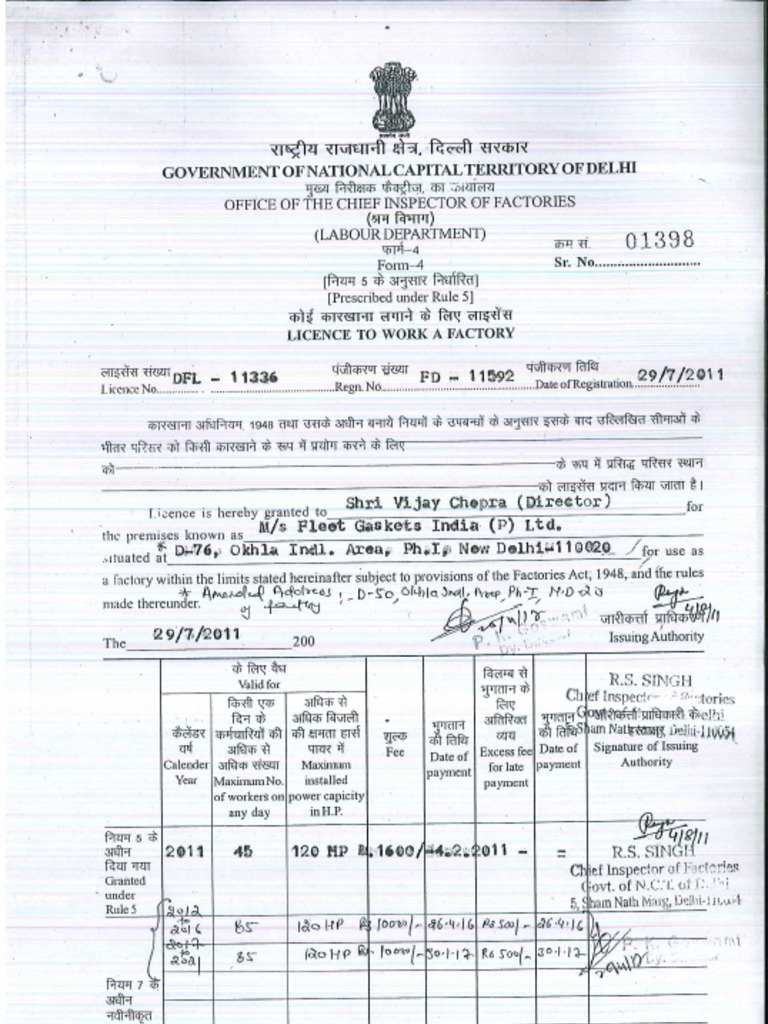 राष्ट्रीय राजधानी क्षेत्र, दिल्ली सरकार
GOVERNMENT OF NATIONAL CAPITAL TERRITORY OF DELHI
मुख्य निरीक्षक फैक्ट्रीज, का कार्यालय
OFFICE OF THE CHIEF INSPECTOR OF FACTORIES
(श्रम विभाग)
(LABOUR DEPARTMENT)
क्रम सं. 01398
फार्म-4
Sr. No.
Form-4
[नियम 5 के अनुसार निर्धारित]
[Prescribed under Rule 5]
कोई कारखाना लगाने के लिए लाइसेंस
LICENCE TO WORK A FACTORY
लाइसेंस संख्या पंजीकरण संख्या पंजीकरण तिथि
Licence No. DFL - 11336 Regn. No. FD - 11592 Date of Registration 29/7/2011
कारखाना अधिनियम, 1948 तथा उसके अधीन बनाये नियमों के उपबन्धों के अनुसार इसके बाद उल्लिखित सीमाओं के
भीतर परिसर को किसी कारखाने के रूप में प्रयोग करने के लिए
को के रूप में प्रसिद्ध परिसर स्थान
को लाइसेंस प्रदान किया जाता है।
Licence is hereby granted to Shri Vijay Chopra (Director) for
the premises known as M/s Fleet Gaskets India (P) Ltd.
situated at * D-76, Okhla Indl. Area, Ph.I, New Delhi-110020 for use as
a factory within the limits stated hereinafter subject to provisions of the Factories Act, 1948, and the rules
made thereunder. * Amended Address :- D-50, Okhla Indl. Area, Ph-I, N.D-20
of factory
P. K. Goswami
4/8/11
जारीकर्त्ता प्राधिकारी
Issuing Authority
The 29/7/2011 200
के लिए वैध
Valid for
कैलेंडर वर्ष Calender Year
किसी एक दिन के कर्मचारियों की अधिक से अधिक संख्या Maximum No. of workers on any day
अधिक से अधिक बिजली की क्षमता हार्स पावर में Maximum installed power capicity in H.P.
शुल्क Fee
भुगतान की तिथि Date of payment
विलम्ब से भुगतान के लिए अतिरिक्त व्यय Excess fee for late payment
भुगतान की तिथि Date of payment
R.S. SINGH
Chief Inspector Factories
Sham Nath Delhi-110054
Signature of Issuing Authority
नियम 5 के अधीन दिया गया Granted under Rule 5
2011 45 120 HP Rs.1600/- 4.2.2011 - =
4/8/11
R.S. SINGH
Chief Inspector of Factories
Govt. of N.C.T. of Delhi
5, Sham Nath Marg, Delhi-110054
2012 to 2016 85 120 HP Rs 10000/- 26.4.16 Rs 500/- 26.4.16
2017 to 2021 85 120 HP Rs 10000/- 30.1.17 Rs 500/- 30.1.17
P. K. Goswami
नियम 7 के अधीन नवीनीकृत